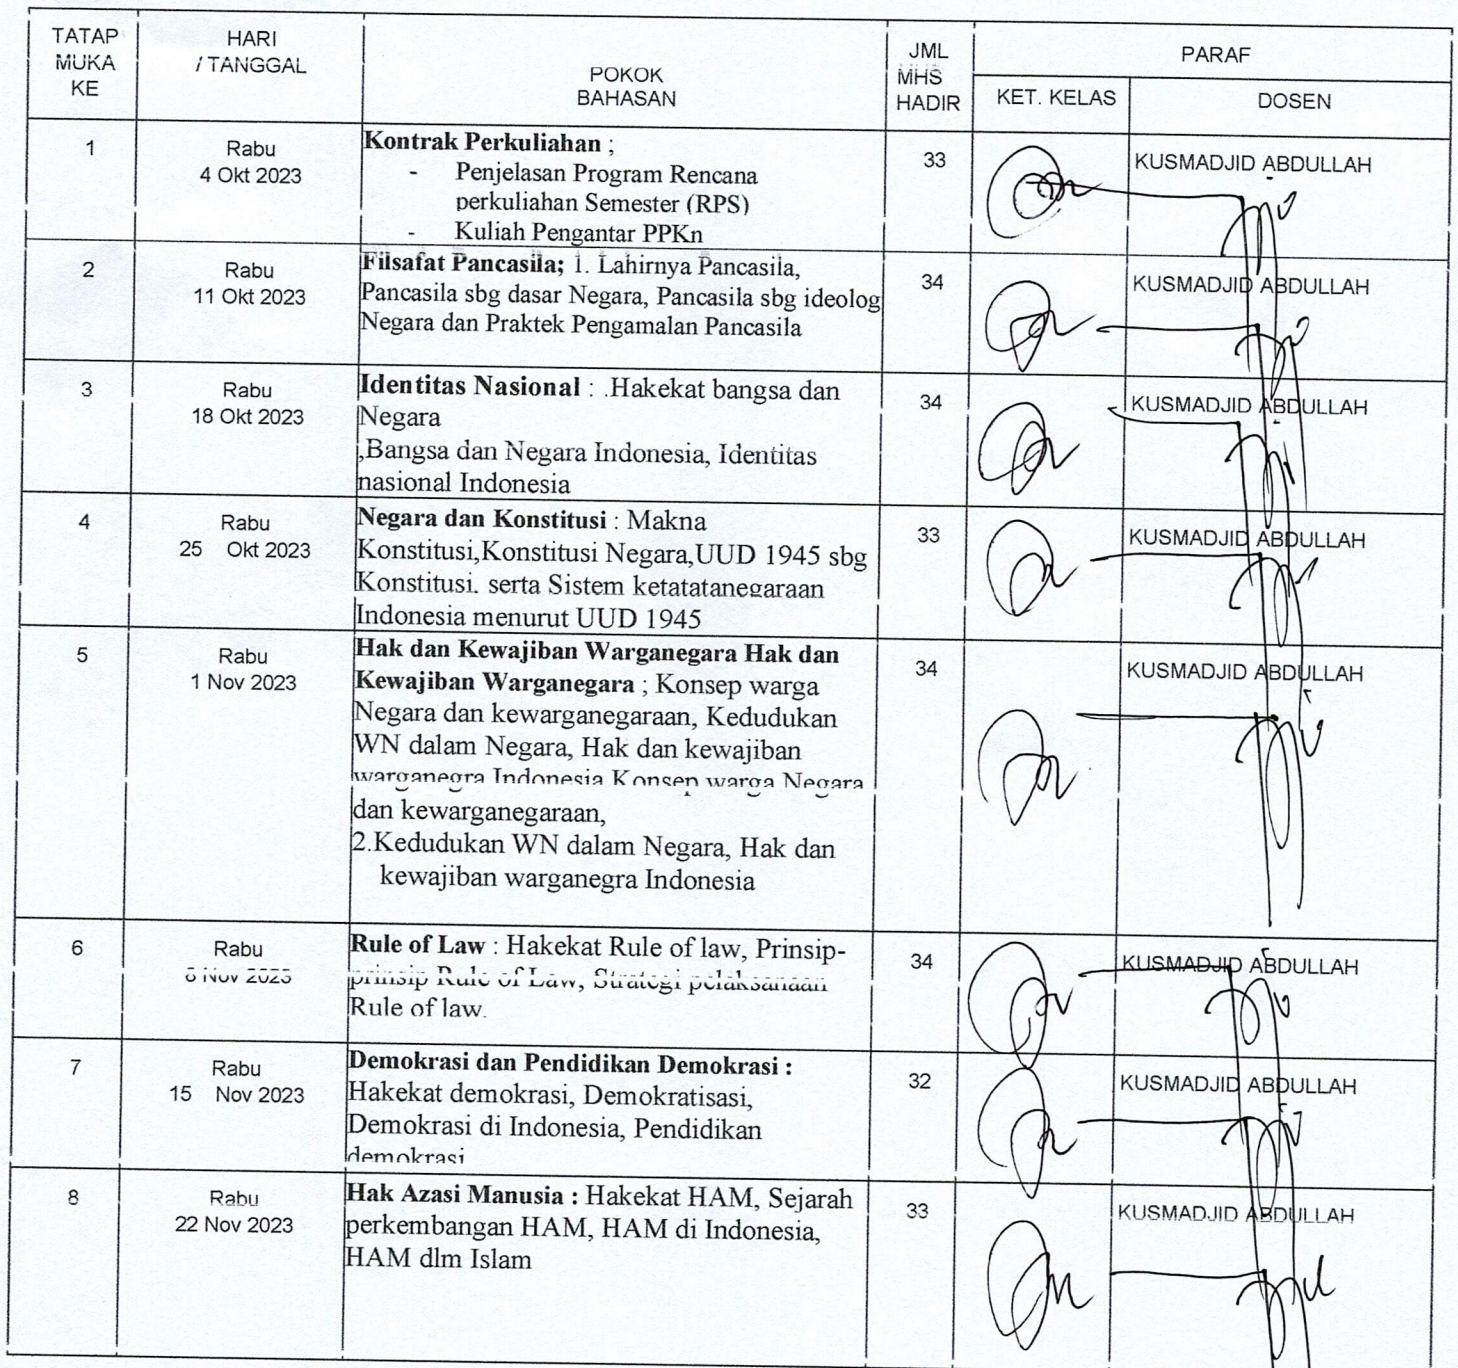 TATAP MUKA KE
HARI / TANGGAL
POKOK BAHASAN
JML MHS HADIR
PARAF
KET. KELAS
DOSEN
1
Rabu
4 Okt 2023
Kontrak Perkuliahan ;
- Penjelasan Program Rencana
perkuliahan Semester (RPS)
- Kuliah Pengantar PPKn
33
KUSMADJID ABDULLAH
2
Rabu
11 Okt 2023
Filsafat Pancasila; 1. Lahirnya Pancasila,
Pancasila sbg dasar Negara, Pancasila sbg ideolog
Negara dan Praktek Pengamalan Pancasila
34
KUSMADJID ABDULLAH
3
Rabu
18 Okt 2023
Identitas Nasional : .Hakekat bangsa dan
Negara
,Bangsa dan Negara Indonesia, Identitas
nasional Indonesia
34
KUSMADJID ABDULLAH
4
Rabu
25 Okt 2023
Negara dan Konstitusi : Makna
Konstitusi,Konstitusi Negara,UUD 1945 sbg
Konstitusi. serta Sistem ketatatanegaraan
Indonesia menurut UUD 1945
33
KUSMADJID ABDULLAH
5
Rabu
1 Nov 2023
Hak dan Kewajiban Warganegara Hak dan
Kewajiban Warganegara ; Konsep warga
Negara dan kewarganegaraan, Kedudukan
WN dalam Negara, Hak dan kewajiban
warganegra Indonesia Konsep warga Negara
dan kewarganegaraan,
2.Kedudukan WN dalam Negara, Hak dan
kewajiban warganegra Indonesia
34
KUSMADJID ABDULLAH
6
Rabu
8 Nov 2023
Rule of Law : Hakekat Rule of law, Prinsip-
prinsip Rule of Law, Strategi pelaksanaan
Rule of law.
34
KUSMADJID ABDULLAH
7
Rabu
15 Nov 2023
Demokrasi dan Pendidikan Demokrasi :
Hakekat demokrasi, Demokratisasi,
Demokrasi di Indonesia, Pendidikan
demokrasi
32
KUSMADJID ABDULLAH
8
Rabu
22 Nov 2023
Hak Azasi Manusia : Hakekat HAM, Sejarah
perkembangan HAM, HAM di Indonesia,
HAM dlm Islam
33
KUSMADJID ABDULLAH